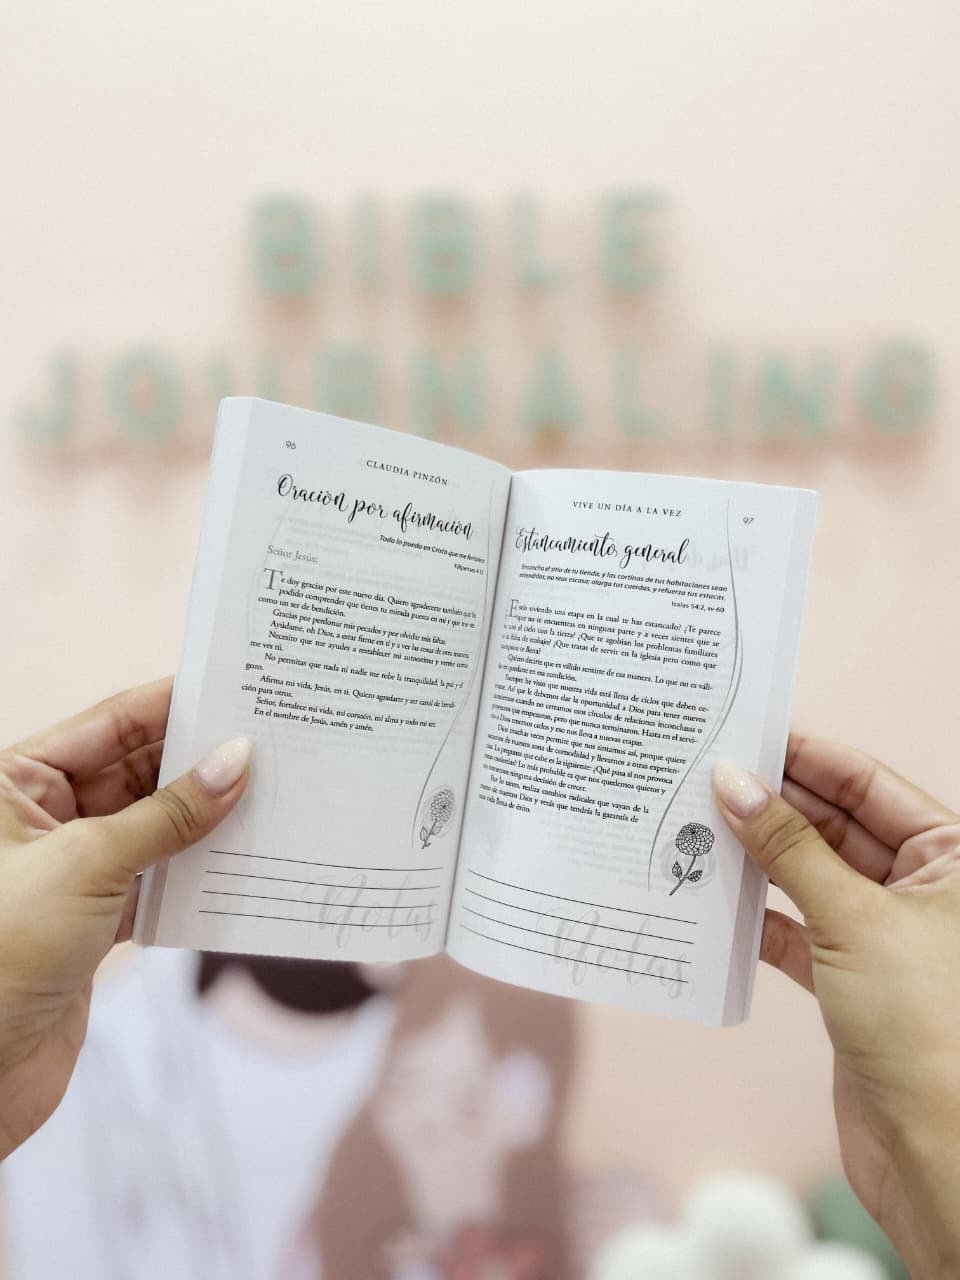 BIBLE
JOURNALING
96
CLAUDIA PINZÓN
Oración por afirmación
Todo lo puedo en Cristo que me fortalece.
Filipenses 4:13
Señor Jesús:
Te doy gracias por este nuevo día. Quiero agradecerte también que he
podido comprender que tienes tu mirada puesta en mí y que me ves
como un ser de bendición.
Gracias por perdonar mis pecados y por olvidar mis faltas.
Ayúdame, oh Dios, a estar firme en ti y a ver las cosas de otra manera.
Necesito que me ayudes a restablecer mi autoestima y verme como
me ves tú.
No permitas que nada ni nadie me robe la tranquilidad, la paz y el
gozo.
Afirma mi vida, Jesús, en ti. Quiero agradarte y ser canal de bendi-
ción para otros.
Señor, fortalece mi vida, mi corazón, mi alma y todo mi ser.
En el nombre de Jesús, amén y amén.
Notas
VIVE UN DÍA A LA VEZ
97
Estancamiento general
Ensancha el sitio de tu tienda, y las cortinas de tus habitaciones sean
extendidas; no seas escasa; alarga tus cuerdas, y refuerza tus estacas.
Isaías 54:2, RV-60
Estás viviendo una etapa en la cual te has estancado? ¿Te parece
que no te encuentras en ninguna parte y a veces sientes que se
con el cielo con la tierra? ¿Que te agobian los problemas familiares
o la falta de trabajo? ¿Que tratas de servir en la iglesia pero como que
tampoco te llena?
Quiero decirte que es válido sentirse de esa manera. Lo que no es váli-
do es quedarse en esa condición.
Siempre he visto que nuestra vida está llena de ciclos que deben ce-
rrarse. Así que le debemos dar la oportunidad a Dios para tener nuevos
comienzos cuando no cerramos esos círculos de relaciones inconclusas o
proyectos que empezaron, pero que nunca terminaron. Hasta en el servi-
cio a Dios tenemos ciclos y eso nos lleva a nuevas etapas.
Dios muchas veces permite que nos sintamos así, porque quiere
sacarnos de nuestra zona de comodidad y llevarnos a otras experien-
cias. La pregunta que cabe es la siguiente: ¿Qué pasa si nos provoca
estas molestias? Lo más probable es que nos quedemos quietos y
no tomemos ninguna decisión de crecer.
Por lo tanto, realiza cambios radicales que vayan de la
mano de nuestro Dios y verás que tendrás la garantía de
una vida llena de éxito.
Notas